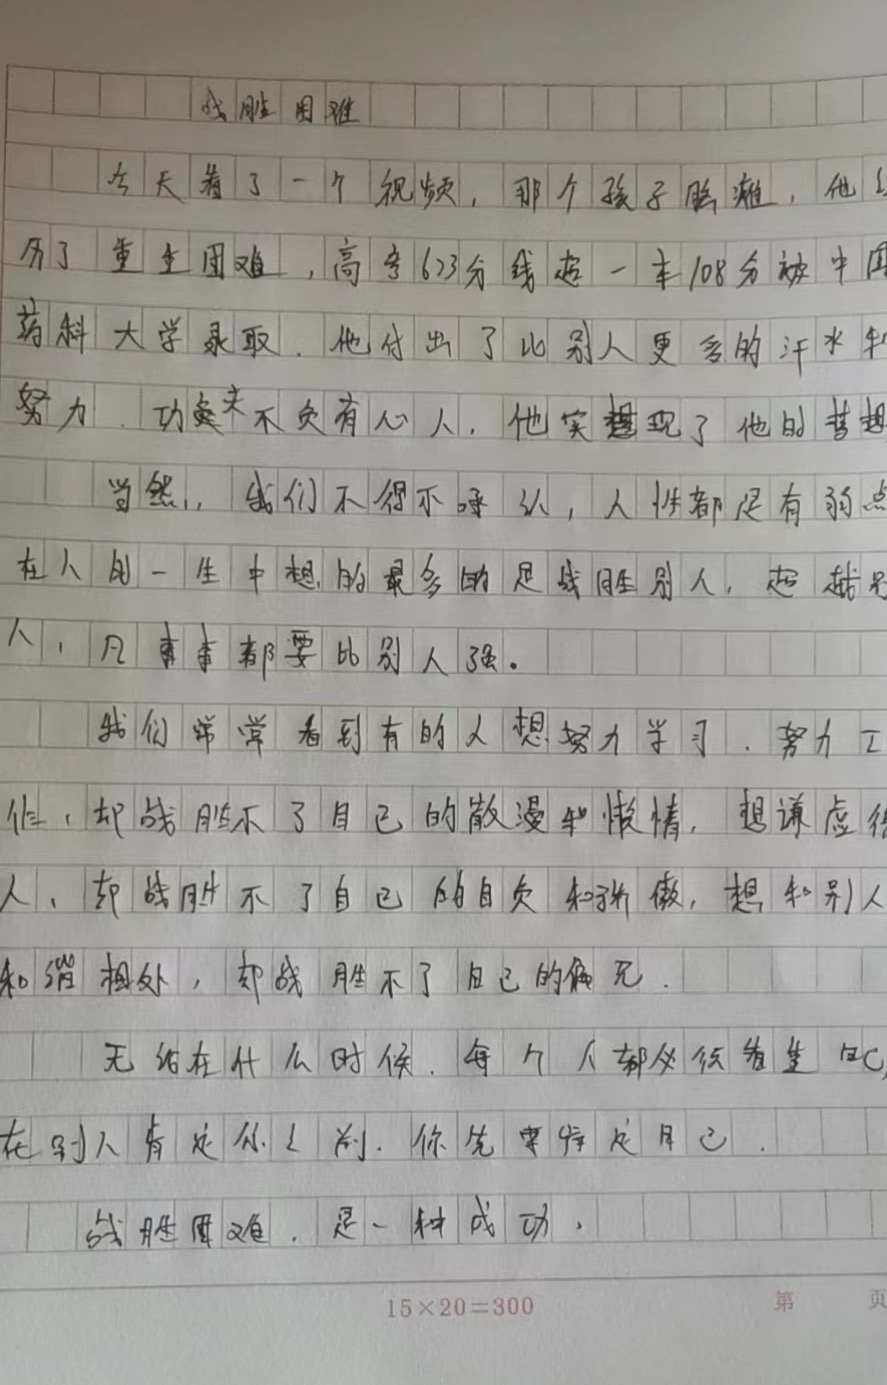 战胜困难
今天看了一个视频，那个孩子脑瘫，他
历了重重困难，高考623分线超一本108分被中国
药科大学录取．他付出了比别人更多的汗水和
努力．功夫不负有心人．他实现了他的梦想
当然，我们不得不承认，人性都是有弱点
在人的一生中想的最多的是战胜别人，超越别
人，凡事事都要比别人强。
我们常常看到有的人想努力学习．努力工
作，却战胜不了自己的散漫和懒惰，想谦虚待
人、却战胜不了自己的自负和骄傲，想和别人
和谐相处，却战胜不了自己的
无论在什么时候．每个人都必须看重自己
在别人肯定你之前．你先要肯定自己．
战胜困难．是一种成功．
15×20=300
第 页